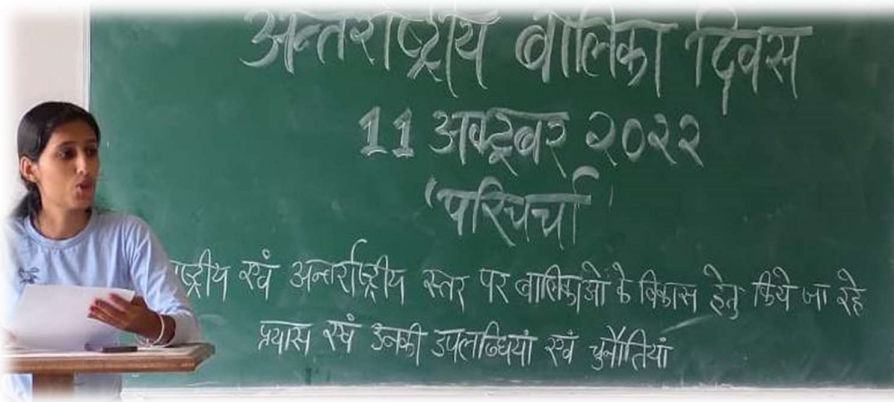 अन्तर्राष्ट्रीय बालिका दिवस
11 अक्टूबर २०२२
'परिचर्चा'
राष्ट्रीय एवं अन्तर्राष्ट्रीय स्तर पर बालिकाओं के विकास हेतु किये जा रहे
प्रयास एवं उनकी उपलब्धियां एवं चुनौतियां